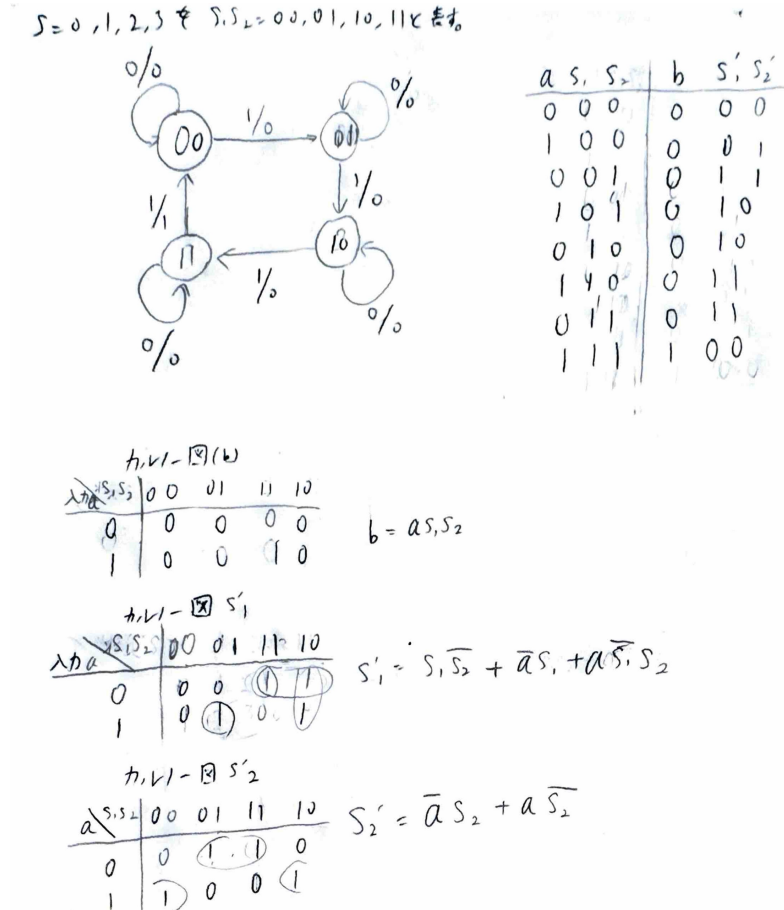 S=0,1,2,3を S₁S₂=00,01,10,11と表す。
0/0
00
1/0
01
0/0
1/0
10
0/0
1/0
11
0/0
1/1
a S₁ S₂ | b S₁' S₂'
0 0 0 | 0 0 0
1 0 0 | 0 0 1
0 0 1 | 0 1 1
1 0 1 | 0 1 0
0 1 0 | 0 1 0
1 1 0 | 0 1 1
0 1 1 | 0 1 1
1 1 1 | 1 0 0
カルノー図(b)
入力a S₁S₂ | 00 01 11 10
0 | 0 0 0 0
1 | 0 0 1 0
b = aS₁S₂
カルノー図 S₁'
入力a S₁S₂ | 00 01 11 10
0 | 0 0 1 1
1 | 0 1 0 1
S₁' = S₁S̅₂ + a̅S₁ + aS̅₁S₂
カルノー図 S'₂
a S₁S₂ | 00 01 11 10
0 | 0 1 1 0
1 | 1 0 0 1
S₂' = a̅S₂ + aS̅₂